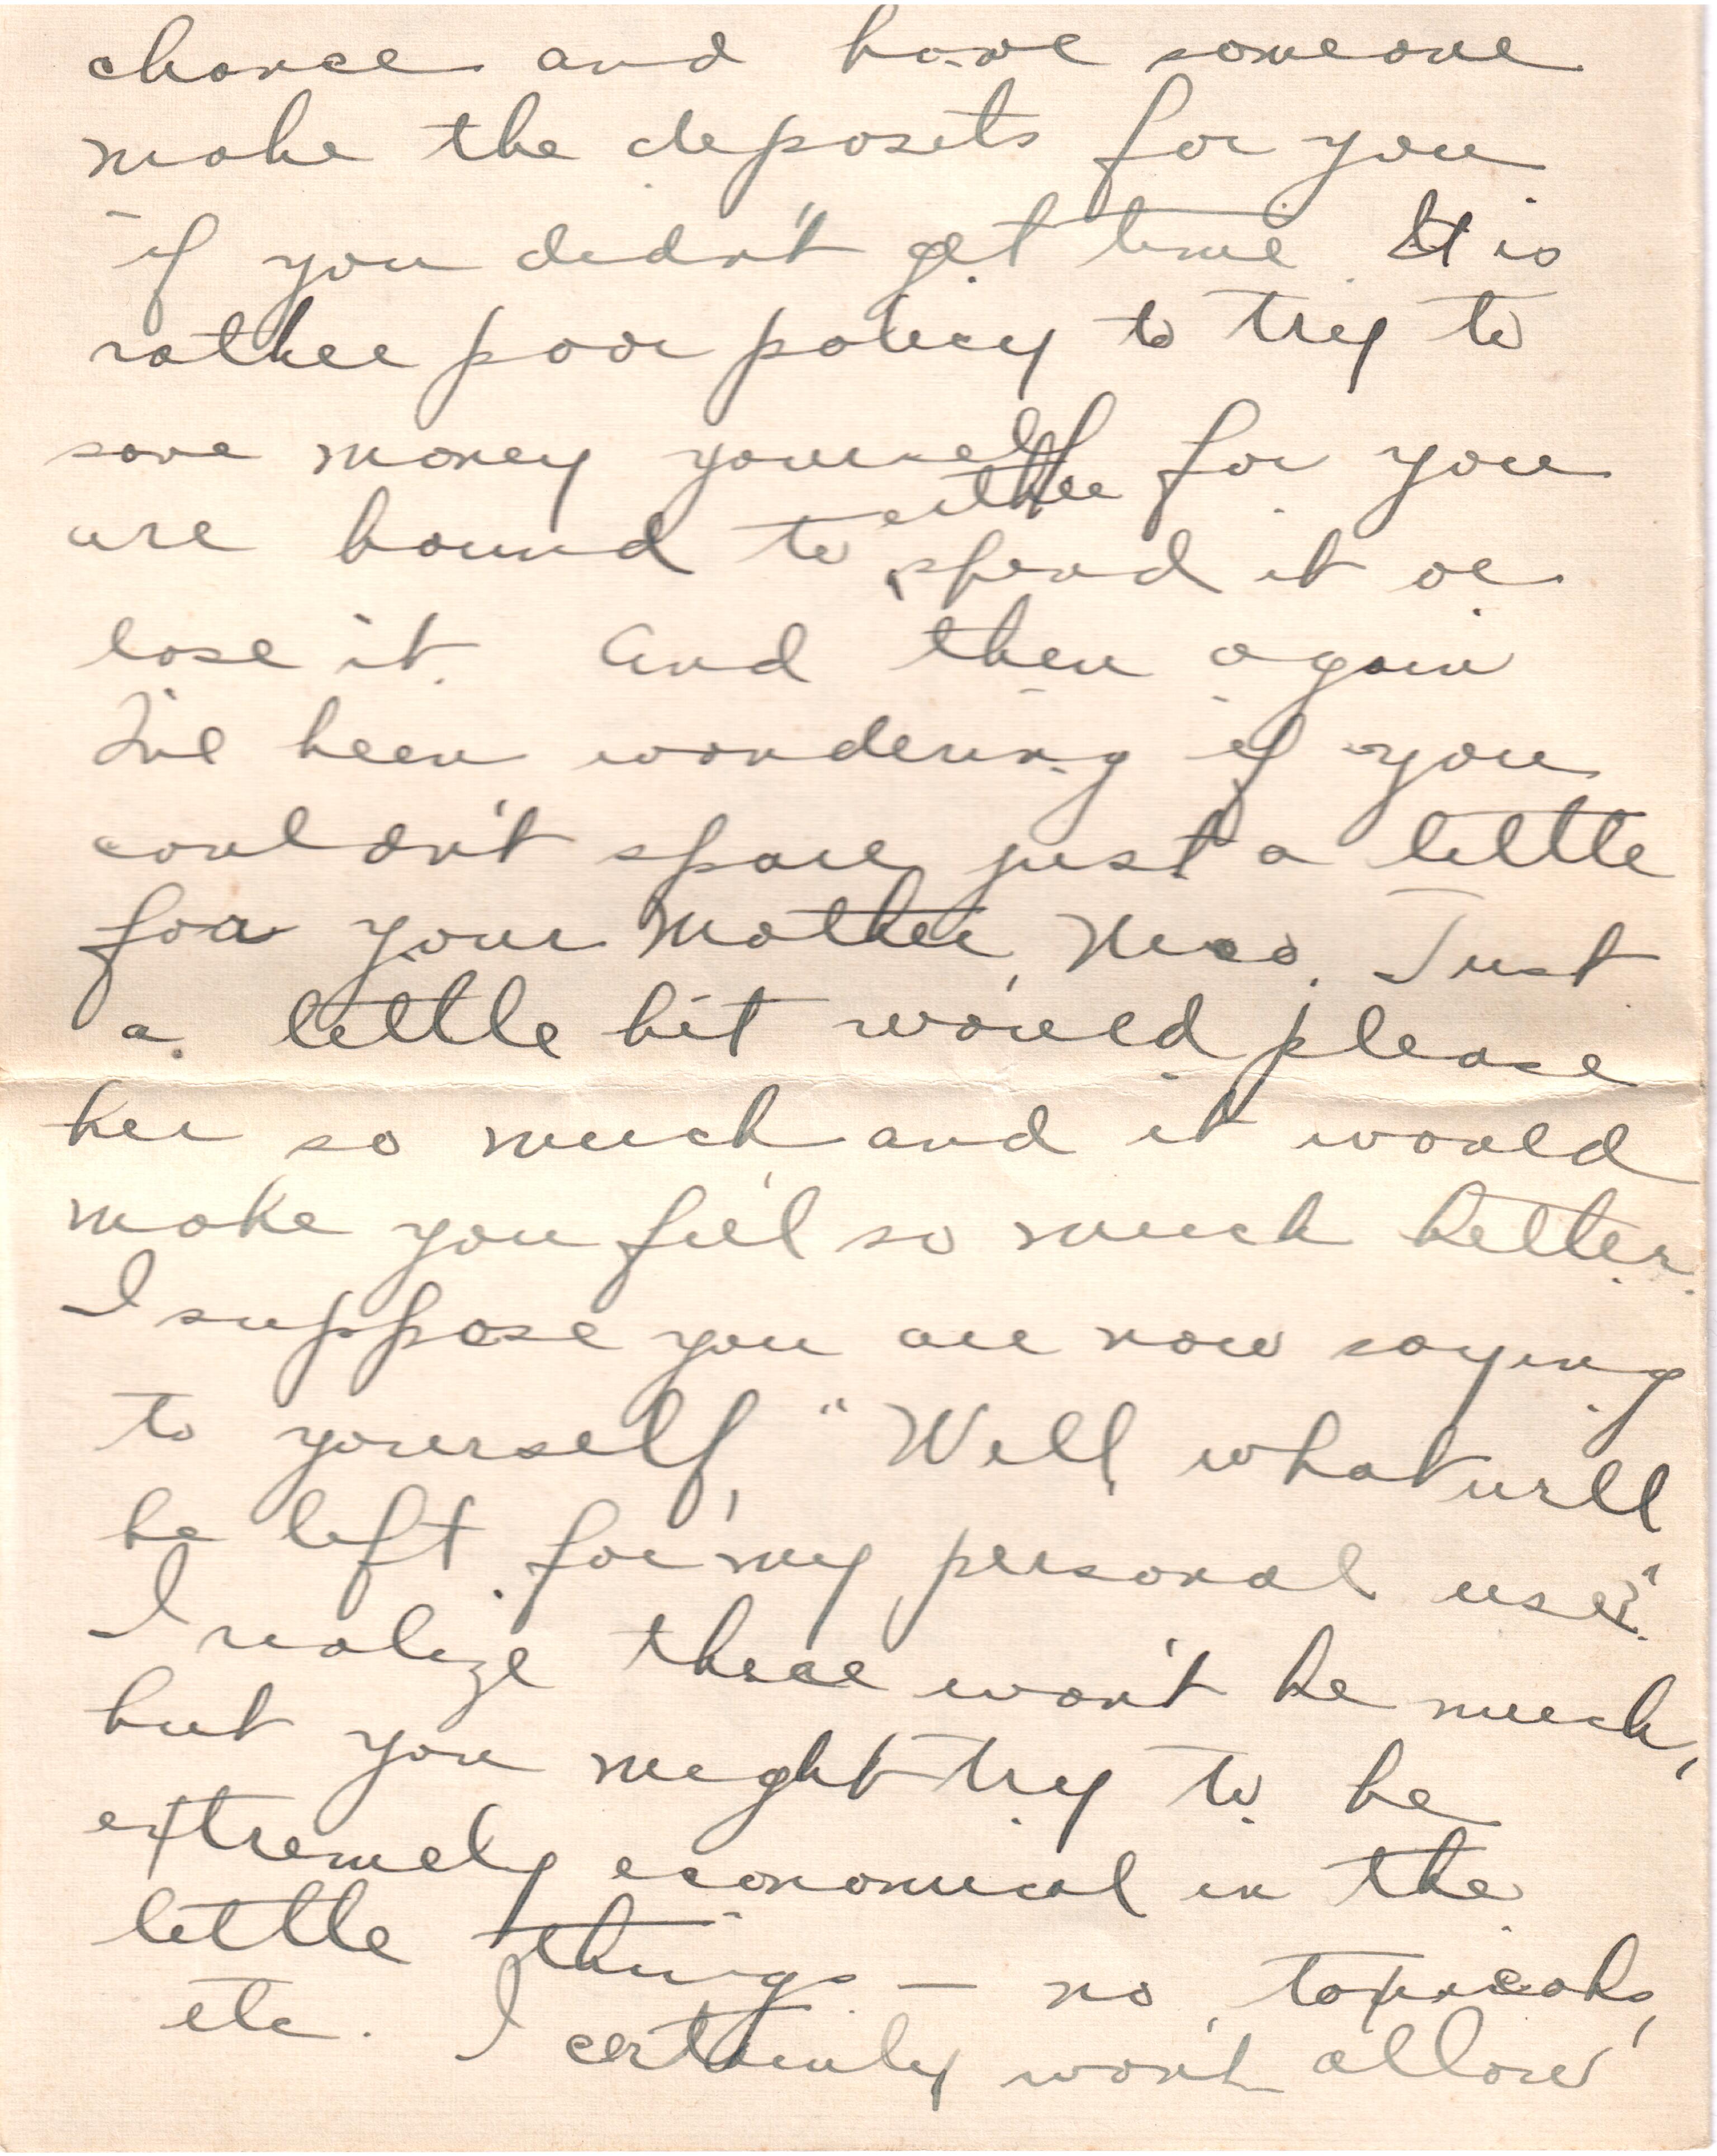 chance and have someone
make the deposits for you
if you didn't get time. It is
rather poor policy to try to
save money yourself for you
are bound to either spend it or
lose it. And then again
I've been wondering if you
couldn't spare just a little
for your Mother, Just
a little bit would please
her so much and it would
make you feel so much better.
I suppose you are now saying
to yourself, "Well, what will
be left for my personal use?"
I realize there won't be much,
but you might try to be
extremely economical in the
little things — no
etc. I certainly won't allow